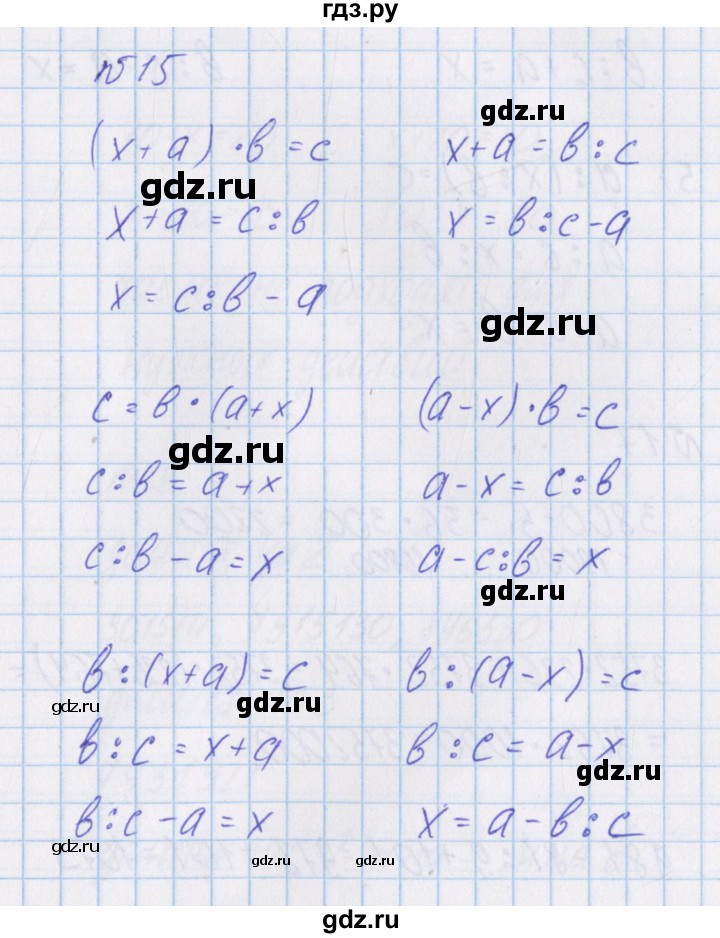 гдз.ру
№15
(x+a)·в=c
x+a=c:в
x=c:в-a
gdz.ru
x+a=в:c
x=в:c-a
gdz.ru
gdz.ru
c=в·(a+x)
c:в=a+x
c:в-a=x
gdz.ru
(a-x)·в=c
a-x=c:в
a-c:в=x
gdz.ru
в:(x+a)=c
в:c=x+a
в:c-a=x
gdz.ru
gdz.ru
gdz.ru
gdz.ru
в:(a-x)=c
в:c=a-x
x=a-в:c
gdz.ru
gdz.ru
gdz.ru